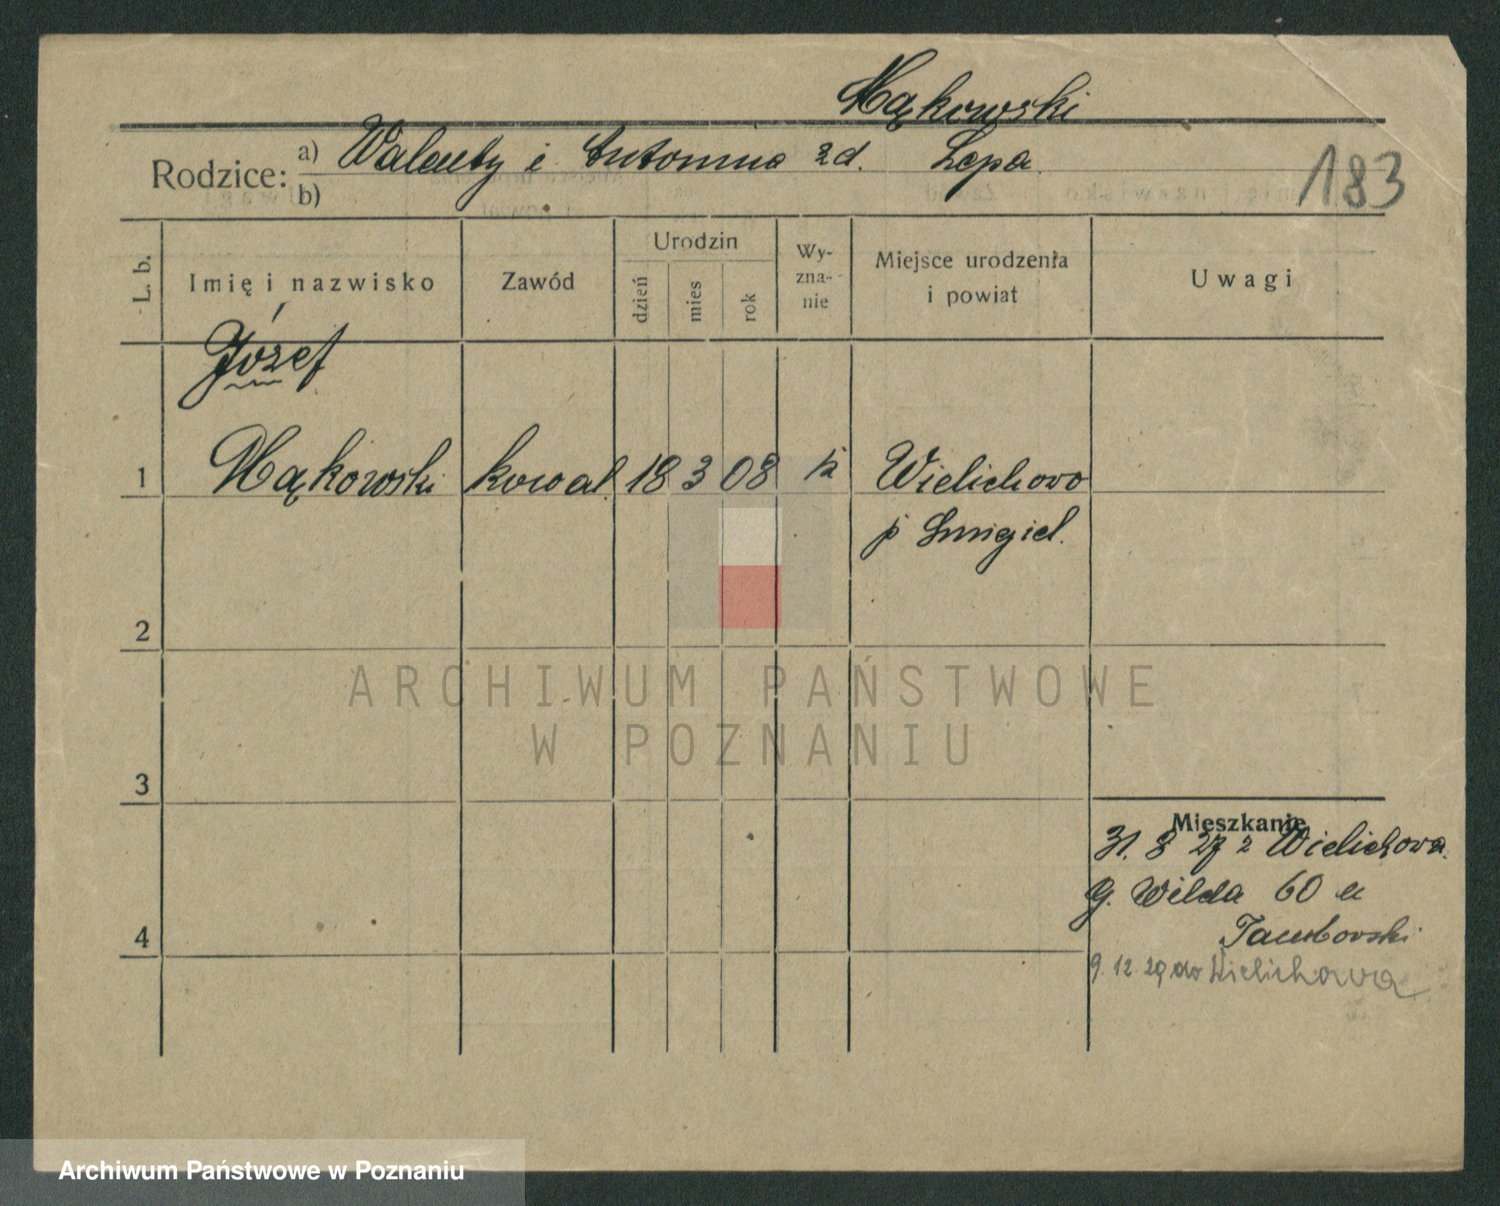 Mąkowski
Rodzice: a) Walenty i Antonina zd. Lepa
b)
183
L. b.
Imię i nazwisko
Zawód
Urodzin
dzień
mies
rok
Wy-
zna-
nie
Miejsce urodzenia
i powiat
Uwagi
Józef
1 Mąkowski kowal 18 3 08 k Wielichowo
p Śmigiel.
2
3
4
Mieszkanie
31. 8 27 z Wielichowa.
G. Wilda 60 u
9. 12. 29 do Wielichowa
ARCHIWUM PAŃSTWOWE
W POZNANIU
Archiwum Państwowe w Poznaniu